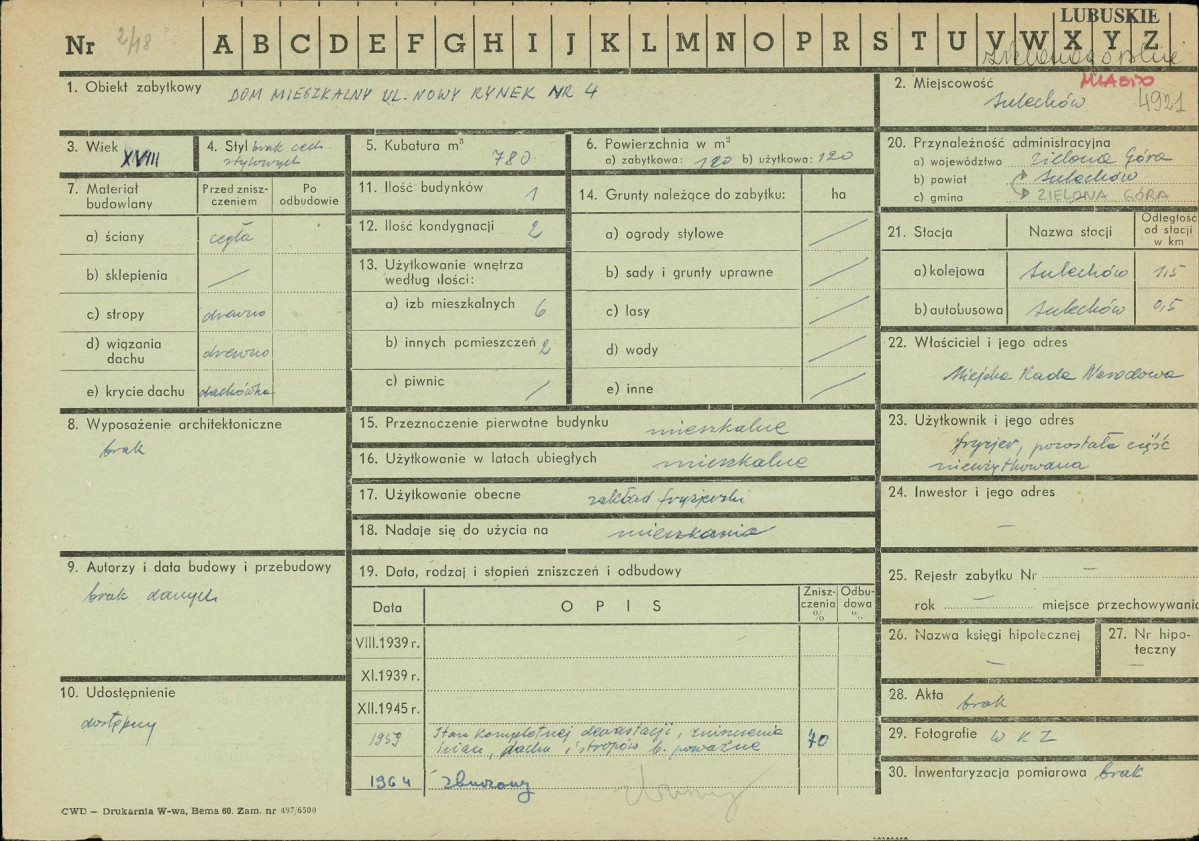 LUBUSKIE
Nr 2/18 A B C D E F G H I J K L M N O P R S T U V W X Y Z
zielonogórskie
1. Obiekt zabytkowy DOM MIESZKALNY UL. NOWY RYNEK NR 4
2. Miejscowość MIASTO
Sulechów 4921
3. Wiek XVIII
4. Styl brak cech
stylowych
5. Kubatura m³ 780
6. Powierzchnia w m²
a) zabytkowa: 120 b) użytkowa: 120
20. Przynależność administracyjna
a) województwo Zielona Góra
b) powiat Sulechów
c) gmina ZIELONA GÓRA
7. Materiał budowlany
Przed zniszczeniem
Po odbudowie
a) ściany cegła
b) sklepienia /
c) stropy drewno
d) wiązania dachu drewno
e) krycie dachu dachówka
11. Ilość budynków 1
12. Ilość kondygnacji 2
13. Użytkowanie wnętrza
według ilości:
a) izb mieszkalnych 6
b) innych pomieszczeń 2
c) piwnic /
14. Grunty należące do zabytku: ha
a) ogrody stylowe /
b) sady i grunty uprawne /
c) lasy /
d) wody /
e) inne /
21. Stacja Nazwa stacji Odległość od stacji w km
a) kolejowa Sulechów 1,5
b) autobusowa Sulechów 0,5
22. Właściciel i jego adres
Miejska Rada Narodowa
8. Wyposażenie architektoniczne
brak
15. Przeznaczenie pierwotne budynku mieszkalne
16. Użytkowanie w latach ubiegłych mieszkalne
17. Użytkowanie obecne zakład fryzjerski
18. Nadaje się do użycia na mieszkania
23. Użytkownik i jego adres
fryzjer, pozostała część
nieużytkowana
24. Inwestor i jego adres
–
9. Autorzy i data budowy i przebudowy
brak danych
19. Data, rodzaj i stopień zniszczeń i odbudowy
Data OPIS Zniszczenia % Odbudowa %
VIII.1939 r.
XI.1939 r.
XII.1945 r.
1959 Stan kompletnej dewastacji, zniszczenia
ścian, dachu i stropów b. poważne 70
1964 zburzony
zburzony
25. Rejestr zabytku Nr –
rok – miejsce przechowywani
26. Nazwa księgi hipotecznej
–
27. Nr hipoteczny
–
10. Udostępnienie
dostępny
28. Akta brak
29. Fotografie WKZ
30. Inwentaryzacja pomiarowa brak
CWD – Drukarnia W-wa, Bema 60. Zam. nr 497/6500